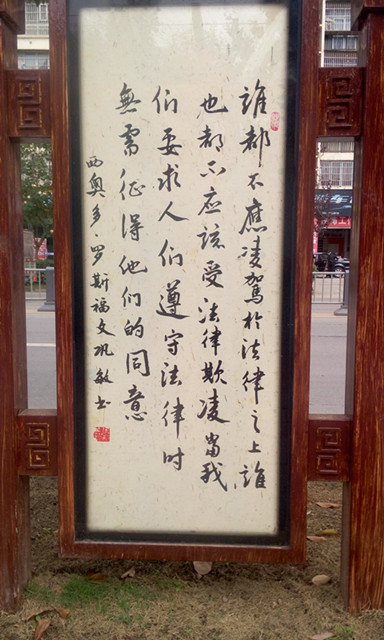 誰都不應凌駕於法律之上誰
也都不应該受法律欺凌當我
们要求人们遵守法律时
無需征得他们的同意
西奥多·罗斯福文巩敏书